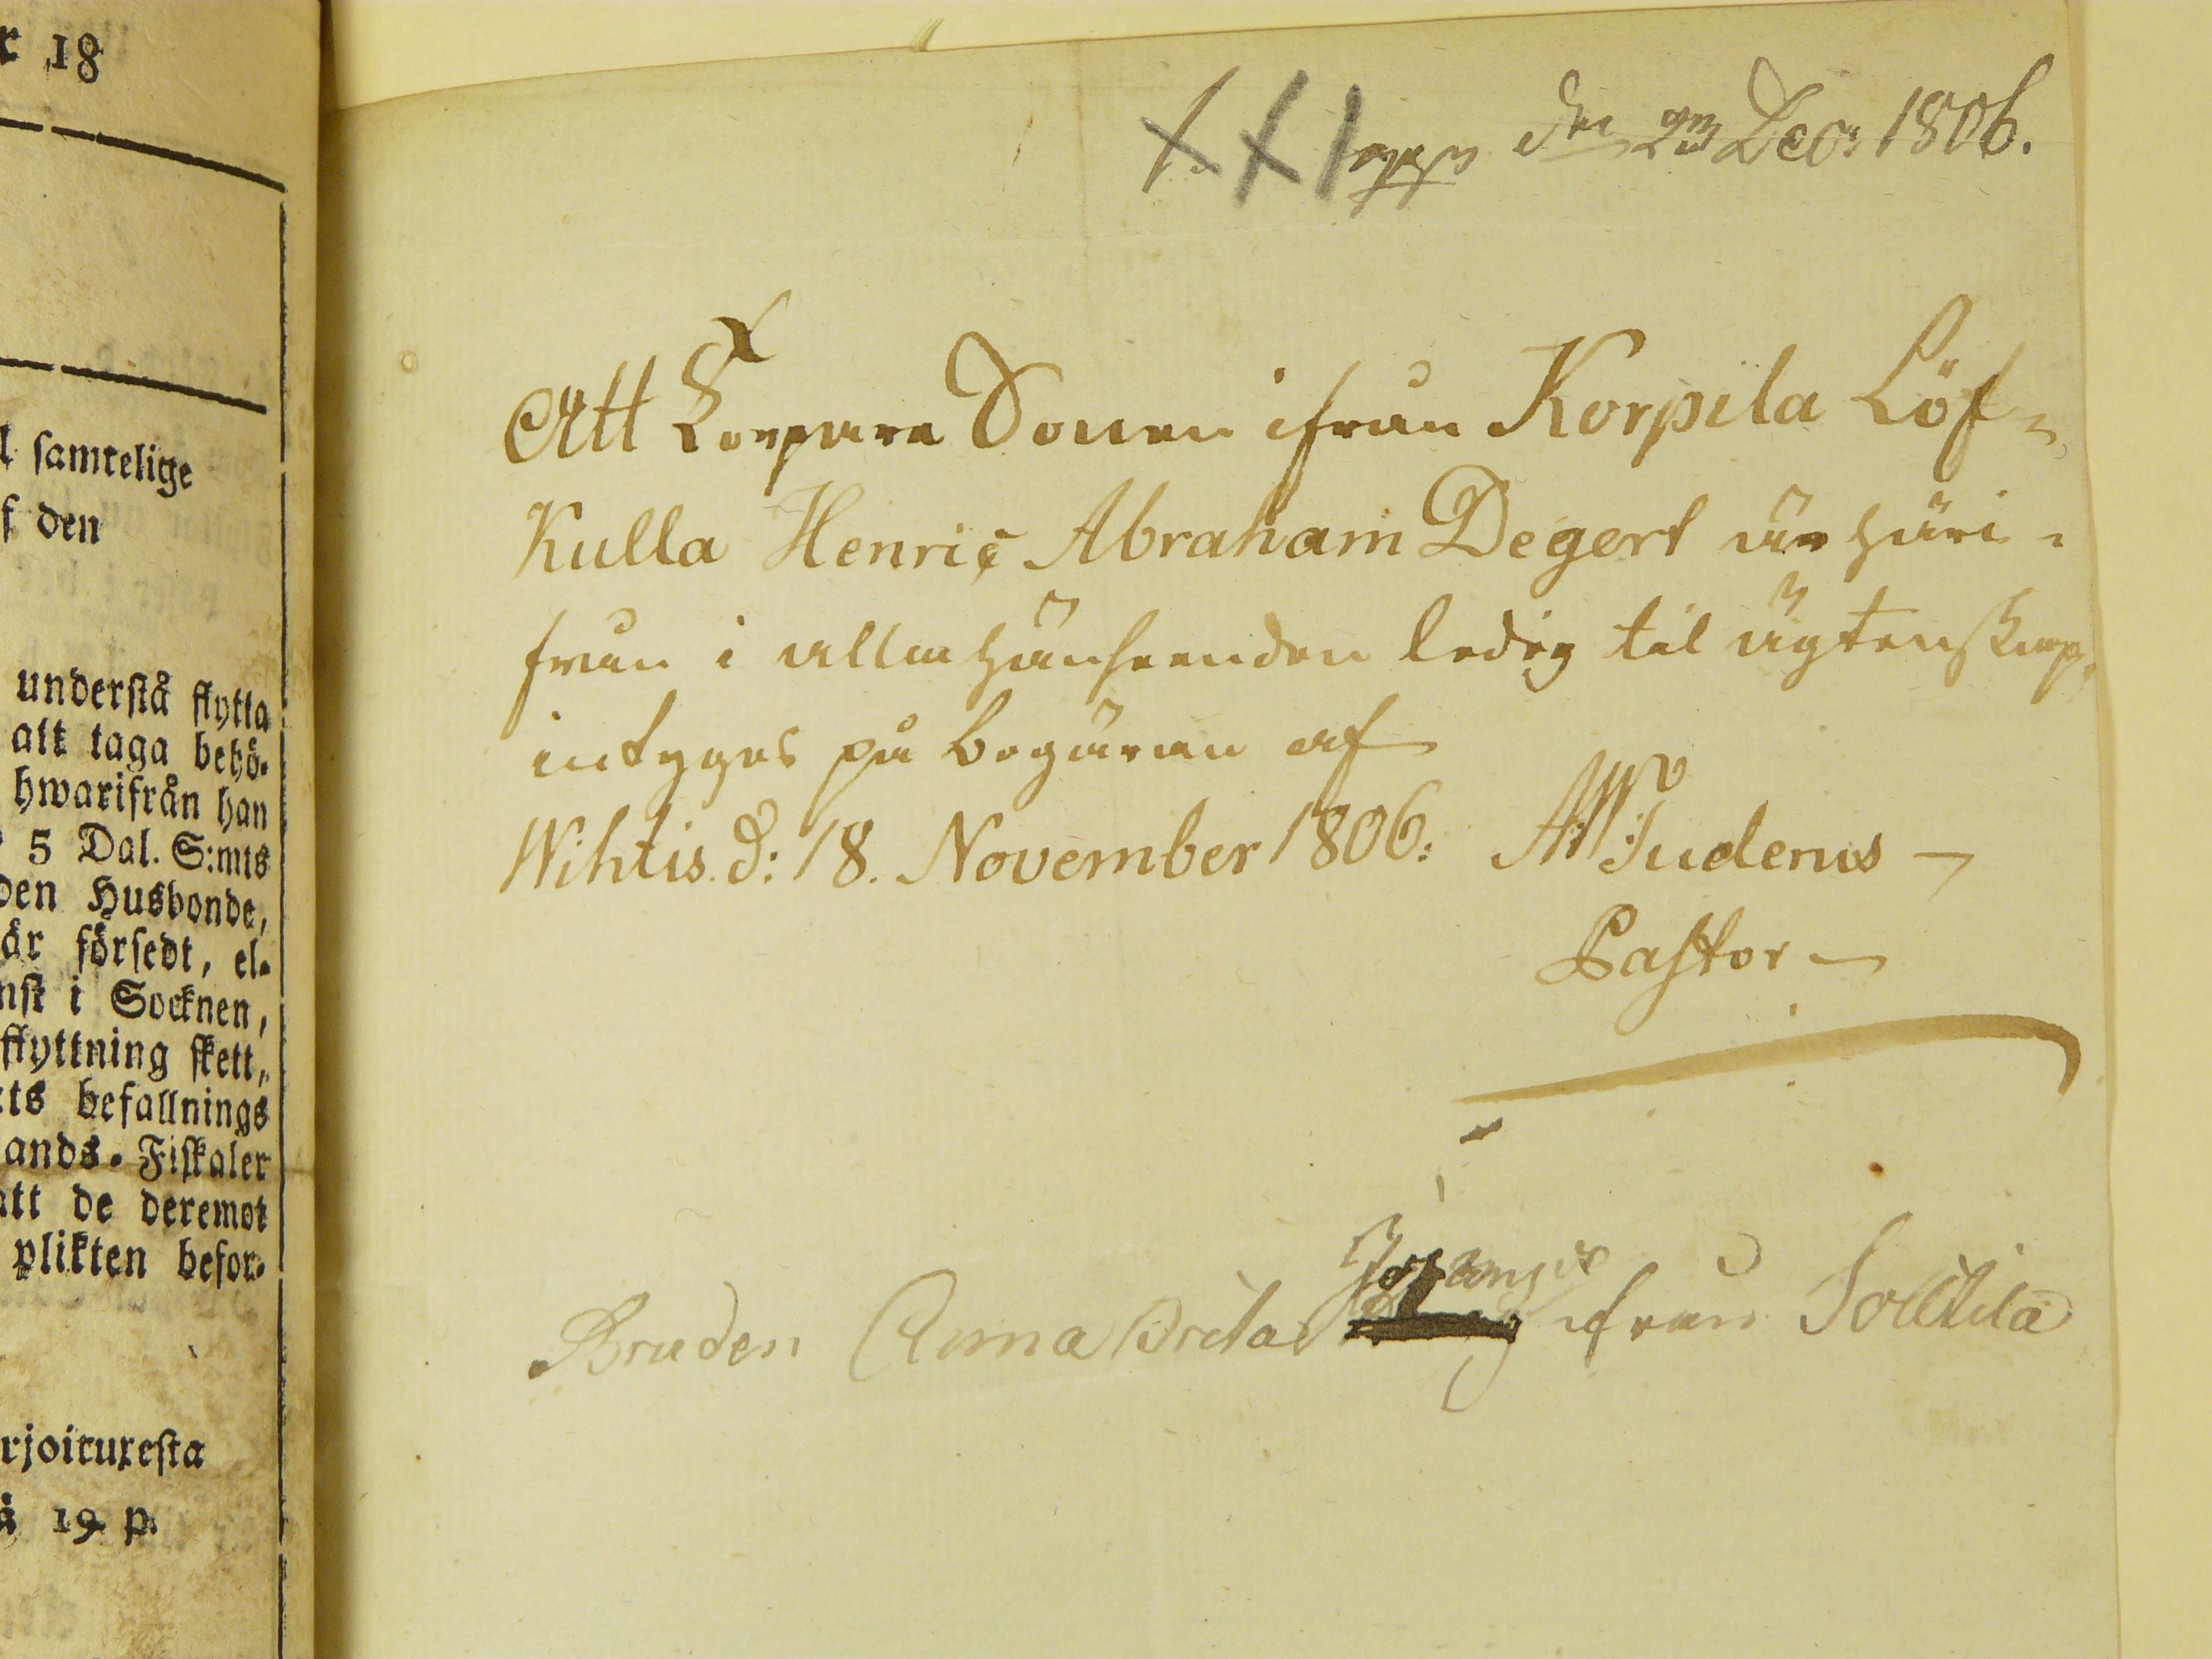 r 18
l samtelige
f den
understå flytta
att taga behö-
hwarifrån han
5 Dal. S:mts
den Husbonde,
är försedt, el-
nst i Socknen,
flyttning skett,
ts befallnings
ands-Fiskaler
att de deremot
plikten befor-
rjoituxesta
19 p.
XXI den Dec: 1806.
Att Torpare Sonen ifrån Korpila Löf-
Kulla Henric Abraham Degert är häri-
från i alla hänseenden ledig til ägtenskap,
intygas på begäran af
Wihtis d: 18. November 1806. Judenius
Pastor
Bruden Anna Brita ifrån